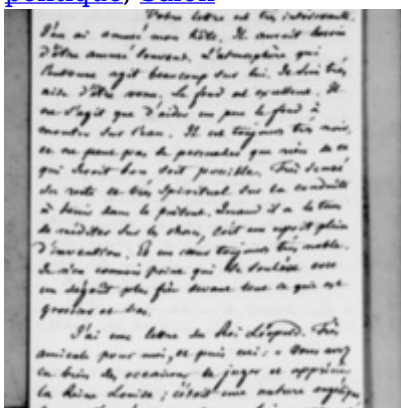 politique, Salon
Votre lettre est très intéressante.
J'en ai amusé mon hôte. Il aurait besoin
d'être amusé souvent. L'atmosphère qui
l'entoure agit beaucoup sur lui. Je suis très
aise d'être venu. Le fond est excellent. Il
ne s'agit que d'aider un peu le fond à
monter sur l'eau. Il est toujours très noir,
et ne peut pas se persuader que rien de ce
qui serait bon soit possible. Très sensé
du reste et très spirituel sur la conduite
à tenir dans le présent. Quand il a le tems
de méditer sur les choses, c'est un esprit plein
d'invention. Et un cœur toujours très noble.
Je n'en connais point qui se soulève avec
un dégoût plus fier devant tout ce qui est
grossier et bas.
J'ai une lettre du Roi Léopold. Très
amicale pour moi, et puis ceci : " Vous avez
eu bien des occasions de juger et apprécier
la Reine Louise ; c'était une nature angélique,